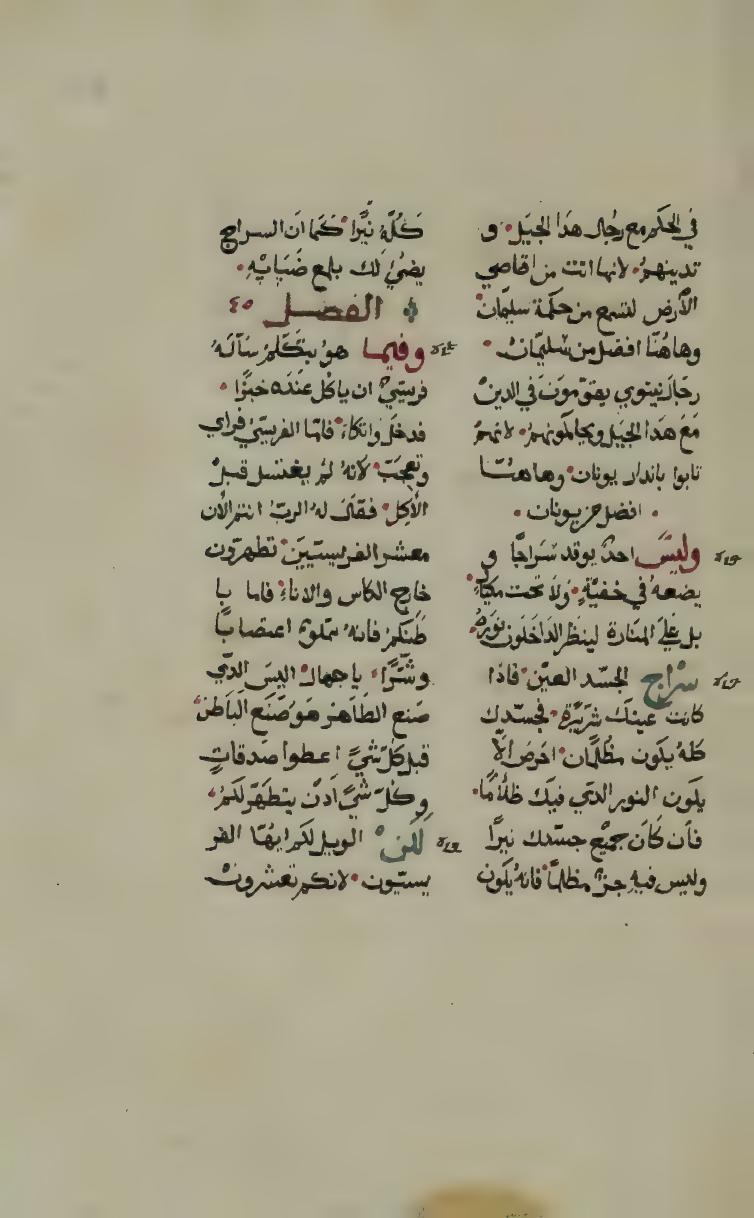 في الحكم مع رجال هذا الجيل. و
تدينهم. لانها اتت من اقاصي
الأرض لتسمع من حكمة سليمان
وهاهنا افضل من سليمان.
رجال نينوي يقومون في الدين
مع هذا الجيل ويحاكمونهم. لانهم
تابوا بانذار يونان. وهاهنا
. افضل من يونان .
وليس احد يوقد سراجا و
يضعه في خفية. ولا تحت مكيال.
بل على المنارة لينظر الداخلون نوره.
سراج الجسد العين. فاذا
كانت عينك شريرة. فجسدك
كله يكون مظلما. احرص ألا
يكون النور الذي فيك ظلاما.
فأن كان جميع جسدك نيرا
وليس فيه جزء مظلما فانه يكون
كله نيرا. كما ان السراج
يضئ لك بلمع ضيايه.
الفصل ٤٥
وفيما هو يتكلم سآله
فريسي ان ياكل عنده خبزا.
فدخل واتكاء. فاما الفريسي فراي
وتعجب. لانه لم يغتسل قبل
الأكل. فقال له الرب. انتم الأن
معشر الفريسيين. تطهرون
خارج الكاس والاناء. فاما با
طنكم فانه مملوء اغتصابا
وشرا. يا جهال. اليس الذي
صنع الظاهر هو صنع الباطن.
قبل كل شي اعطوا صدقات
وكل شي اذن يتطهر لكم.
لكن الويل لكم ايها الفر
يسيون. لانكم تعشرون